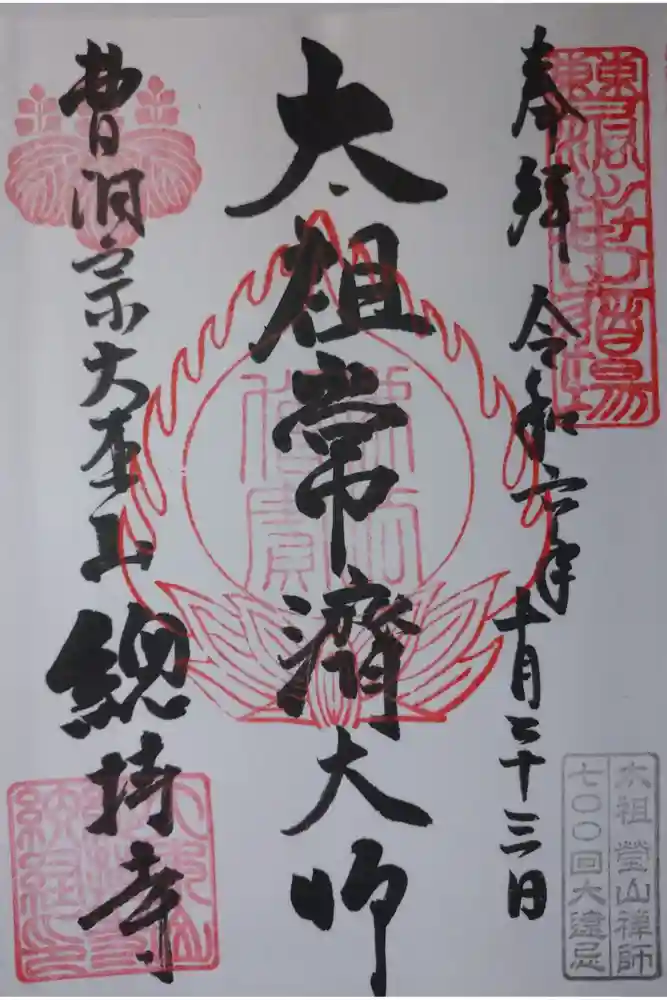 奉拝 令和六年十月二十三日
太祖常濟大師
曹洞宗大本山
總持寺
太祖瑩山禅師
七〇〇回大遠忌